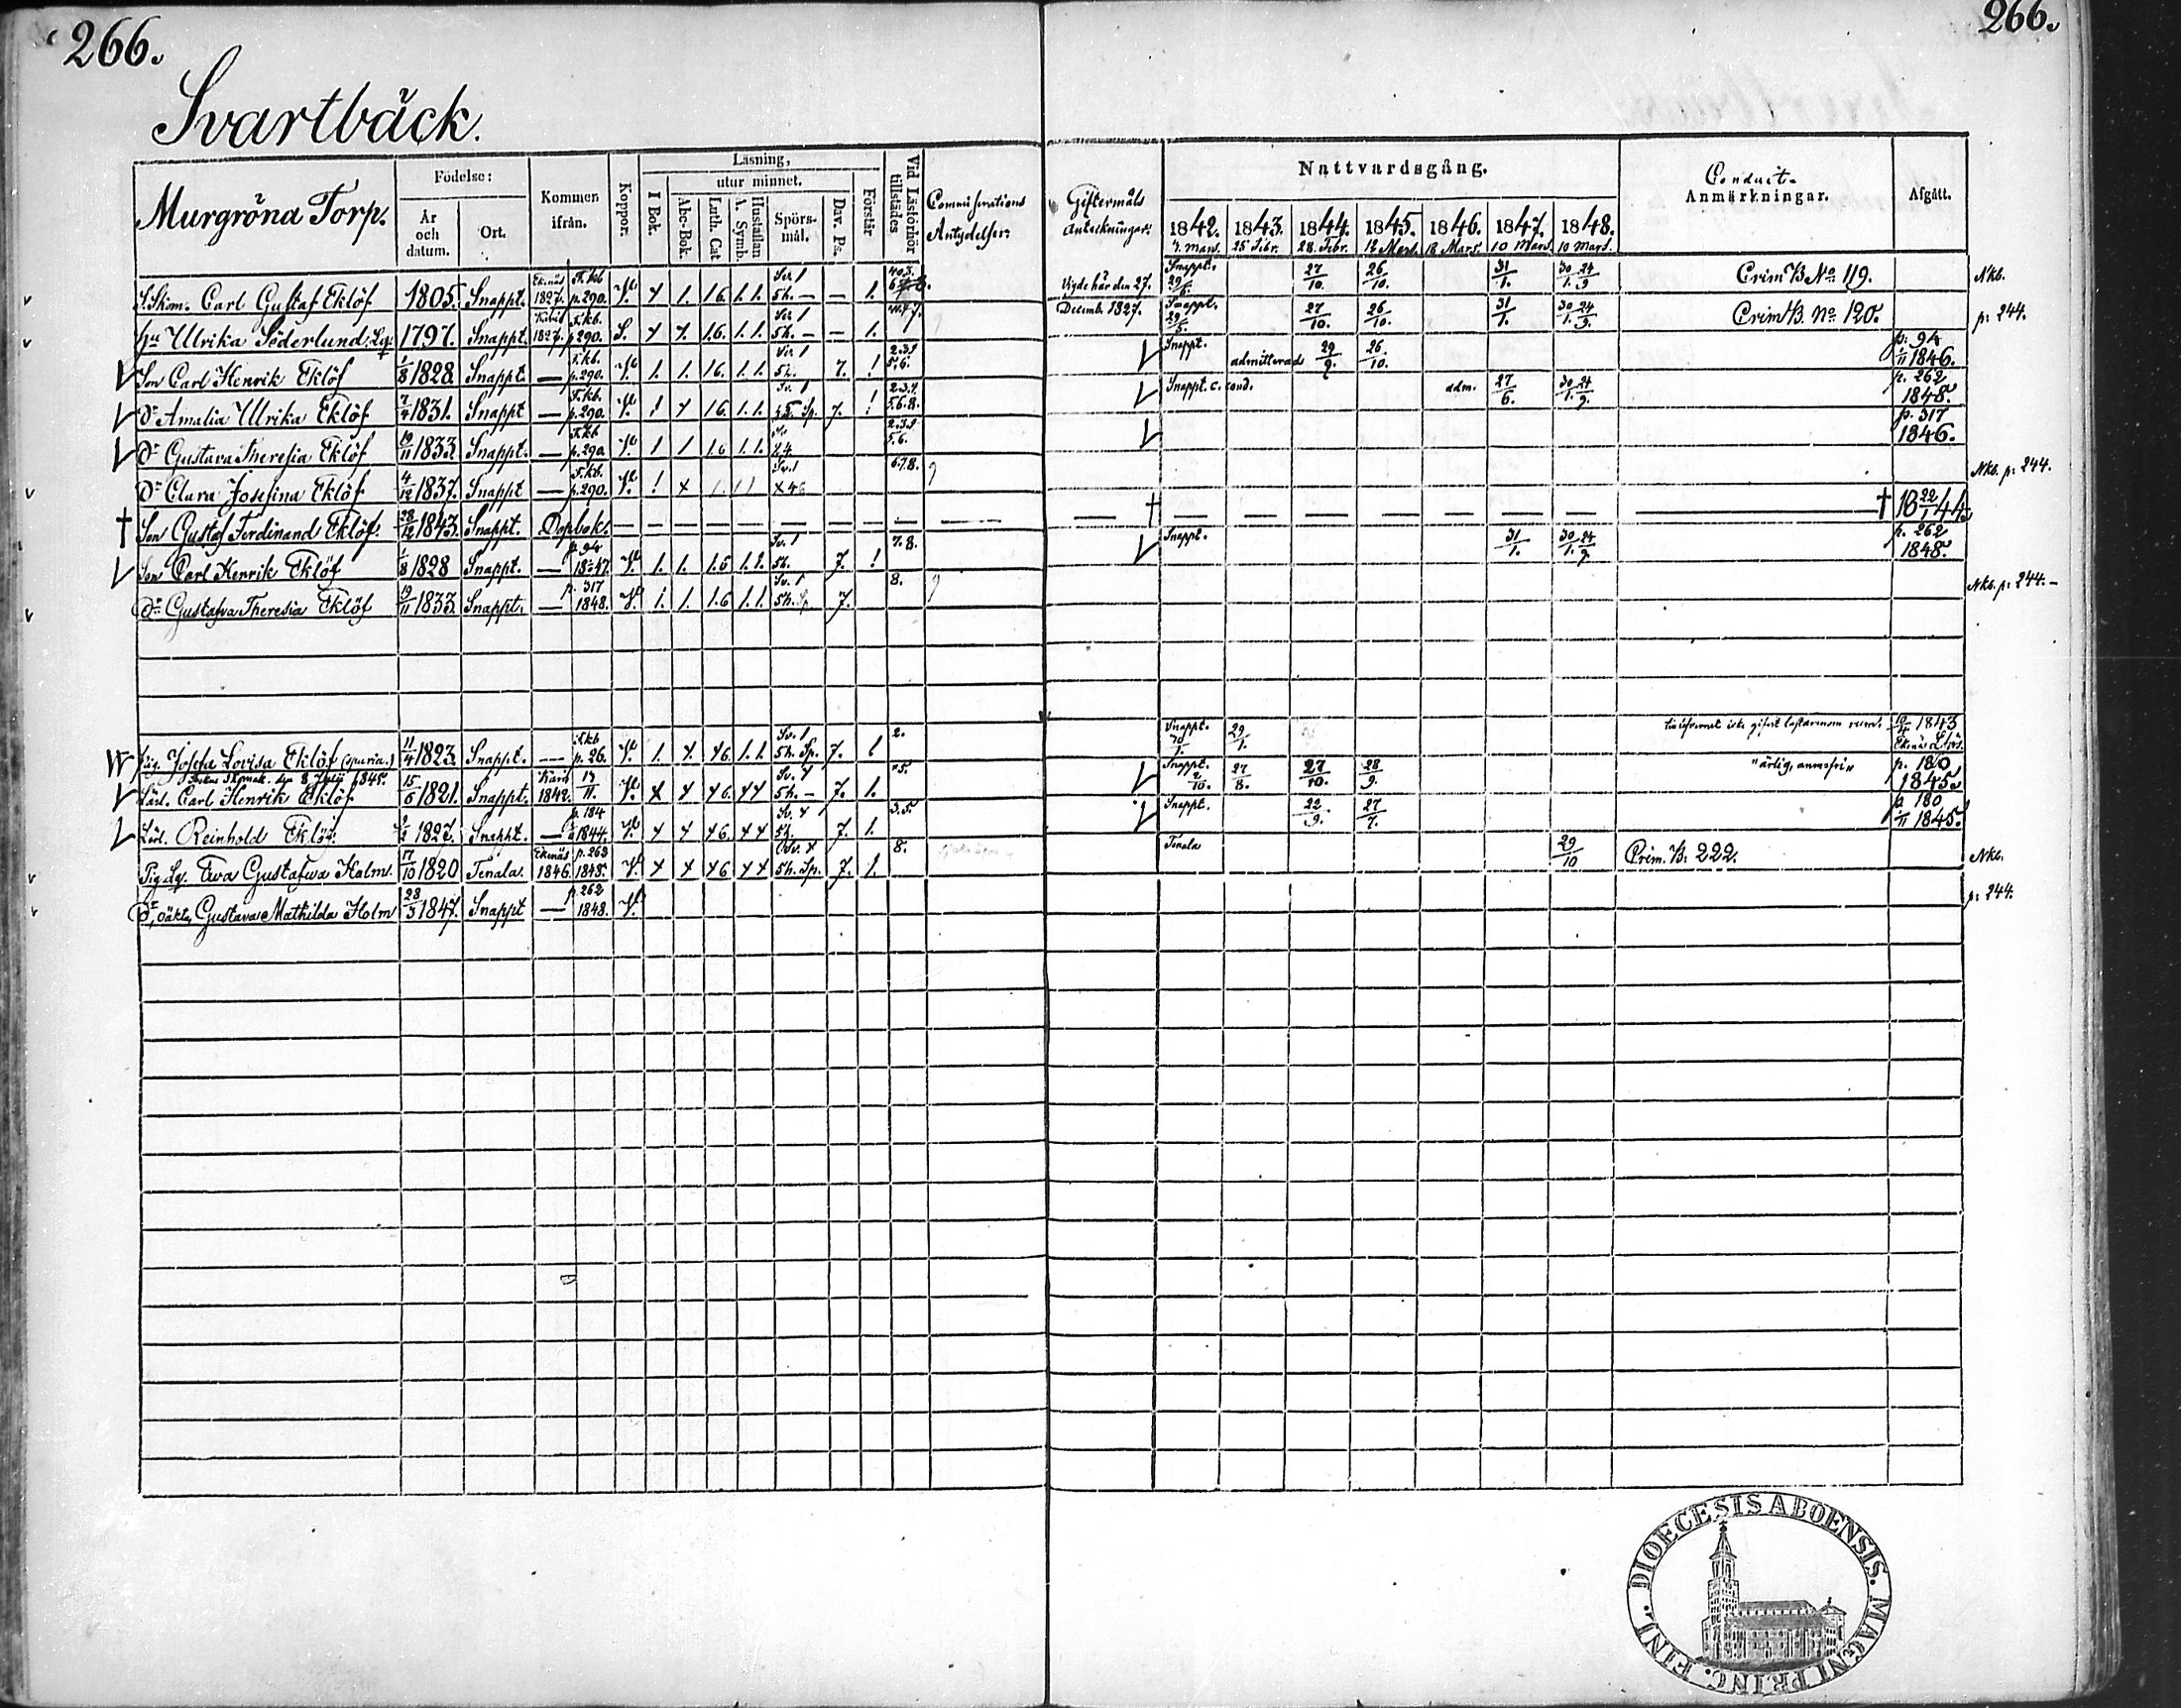 266.
266.
Svartbäck.
Murgröna Torp.
Födelse:
År och datum.
Ort.
Kommen ifrån.
Koppor.
Läsning,
I Bok.
utur minnet.
Abc-Bok.
Luth. Cat
A. Symb.
Hustaflan
Spörs-mål.
Dav. Ps.
Förstår
Vid Läsförhör. tillstädes
Antydelser.
Giftermåls anteckningar.
Nattvardsgång.
1842. 1843. 1844. 1845. 1846. 1847. 1848.
7. Mars. 25 Febr. 28. Febr. 12 Mars. 18 Mars. 10 Mars. 10 Mars.
Conduit-Anmärkningar.
Afgått.
S.Skom. Carl Gustaf Eklöf 1805. Snappt. Ekenäs 1827. F.kb p.290. V. Sv. 1 5h. — 1. Vigde här den 27. Snappt. 29/5. 27/10. 26/10. 31/1. 30/1. 24/9 Crim B No 119. Nkb.
hu Ulrika Söderlund. Lg. 1797. Snappt. 1827. F.kb. p290. S. 5h. — — 1. Decemb. 1827. Snappt. 29/5 27/10. 26/10. 31/1. 30/1. 24/9. Crim B. No 120. p: 244.
Son Carl Henrik Eklöf 1/8 1828. Snappt. — F.kb. p.290. V. 1. 1. 1.6. 1.1. 5h. 7. ! 2.3.! 5.6. Snappt. admitterad 29/9. 26/10. p: 94 1/11 1846.
Dr Amalia Ulrika Eklöf 7/4 1831. Snappt — F.kb. p.290. V. 1.6 1.1. Sp. 7. ! 5.6.8. Snappt. c. cond. adm. 27/6. 30/1. 24/9. p. 262 1848.
Dr Gustava Theresia Eklöf 19/11 1833. Snappt. — F.kb p.290. V. 1 1 1.6 1.1. 5.6. p. 317 1846.
Dr Clara Josefina Eklöf 4/12 1837. Snappt — F.kb. p.290. V. ! x Sv.1 6.7.8. Nkb. p: 244.
† Son Gustaf Ferdinand Eklöf. 28/12 1843. Snappt. Dopbok. — — — — — — † † 18 22/1 44.
Son Carl Henrik Eklöf 1/8 1828 Snappt. — p 94 V. 1. 1. 1.6 1.1. Sv. 1 5h. 7. ! 7.8. Snappt. 31/1. 30/1. 24/9. p. 262 1848.
Dr Gustafva Theresia Eklöf 19/11 1833. Snappt. — p. 317 1848. V. 1. 1. 1.6 1.1. Sv. 1 5h. 7. 8. Nkb. p: 244.—
Pig. Josefa Lovisa Eklöf (spuria.) 11/4 1823. Snappt. — F.kb p. 26. V. 1. 1.1. Sv. 1 5h. Sp. 7. 2. Snappt. 29/1. 10/4 1843
den 8 Julii 1845.
Lärl. Carl Henrik Eklöf 15/6 1821. Snappt. Karis 1842. 13/11. V. Sv. 5h. — 7. 1. Snappt. 2/10. 27/8. 27/10. 28/9. p. 180 1845.
Lärl. Reinhold Eklöf. 1827. Snappt. — p. 184 1844. V. 5h. 7. 1. 3.5. Snappt. 22/9. 27/7. p 180 1/11 1845.
Pig. Lg. Ewa Gustafva Holm. 17/10 1820 Tenala. Ekenäs 1846. p. 263 1848. V. 5h. Sp. 7. 1. 8. Tenala 29/10 Crim. B. 222. Nkb.
Dr oäkta Gustava Mathilda Holm 28/3 1847. Snappt — p. 262 1848. V. p: 244.
DIOECESIS ABOENSIS. MAGNI PRINC. FINL.